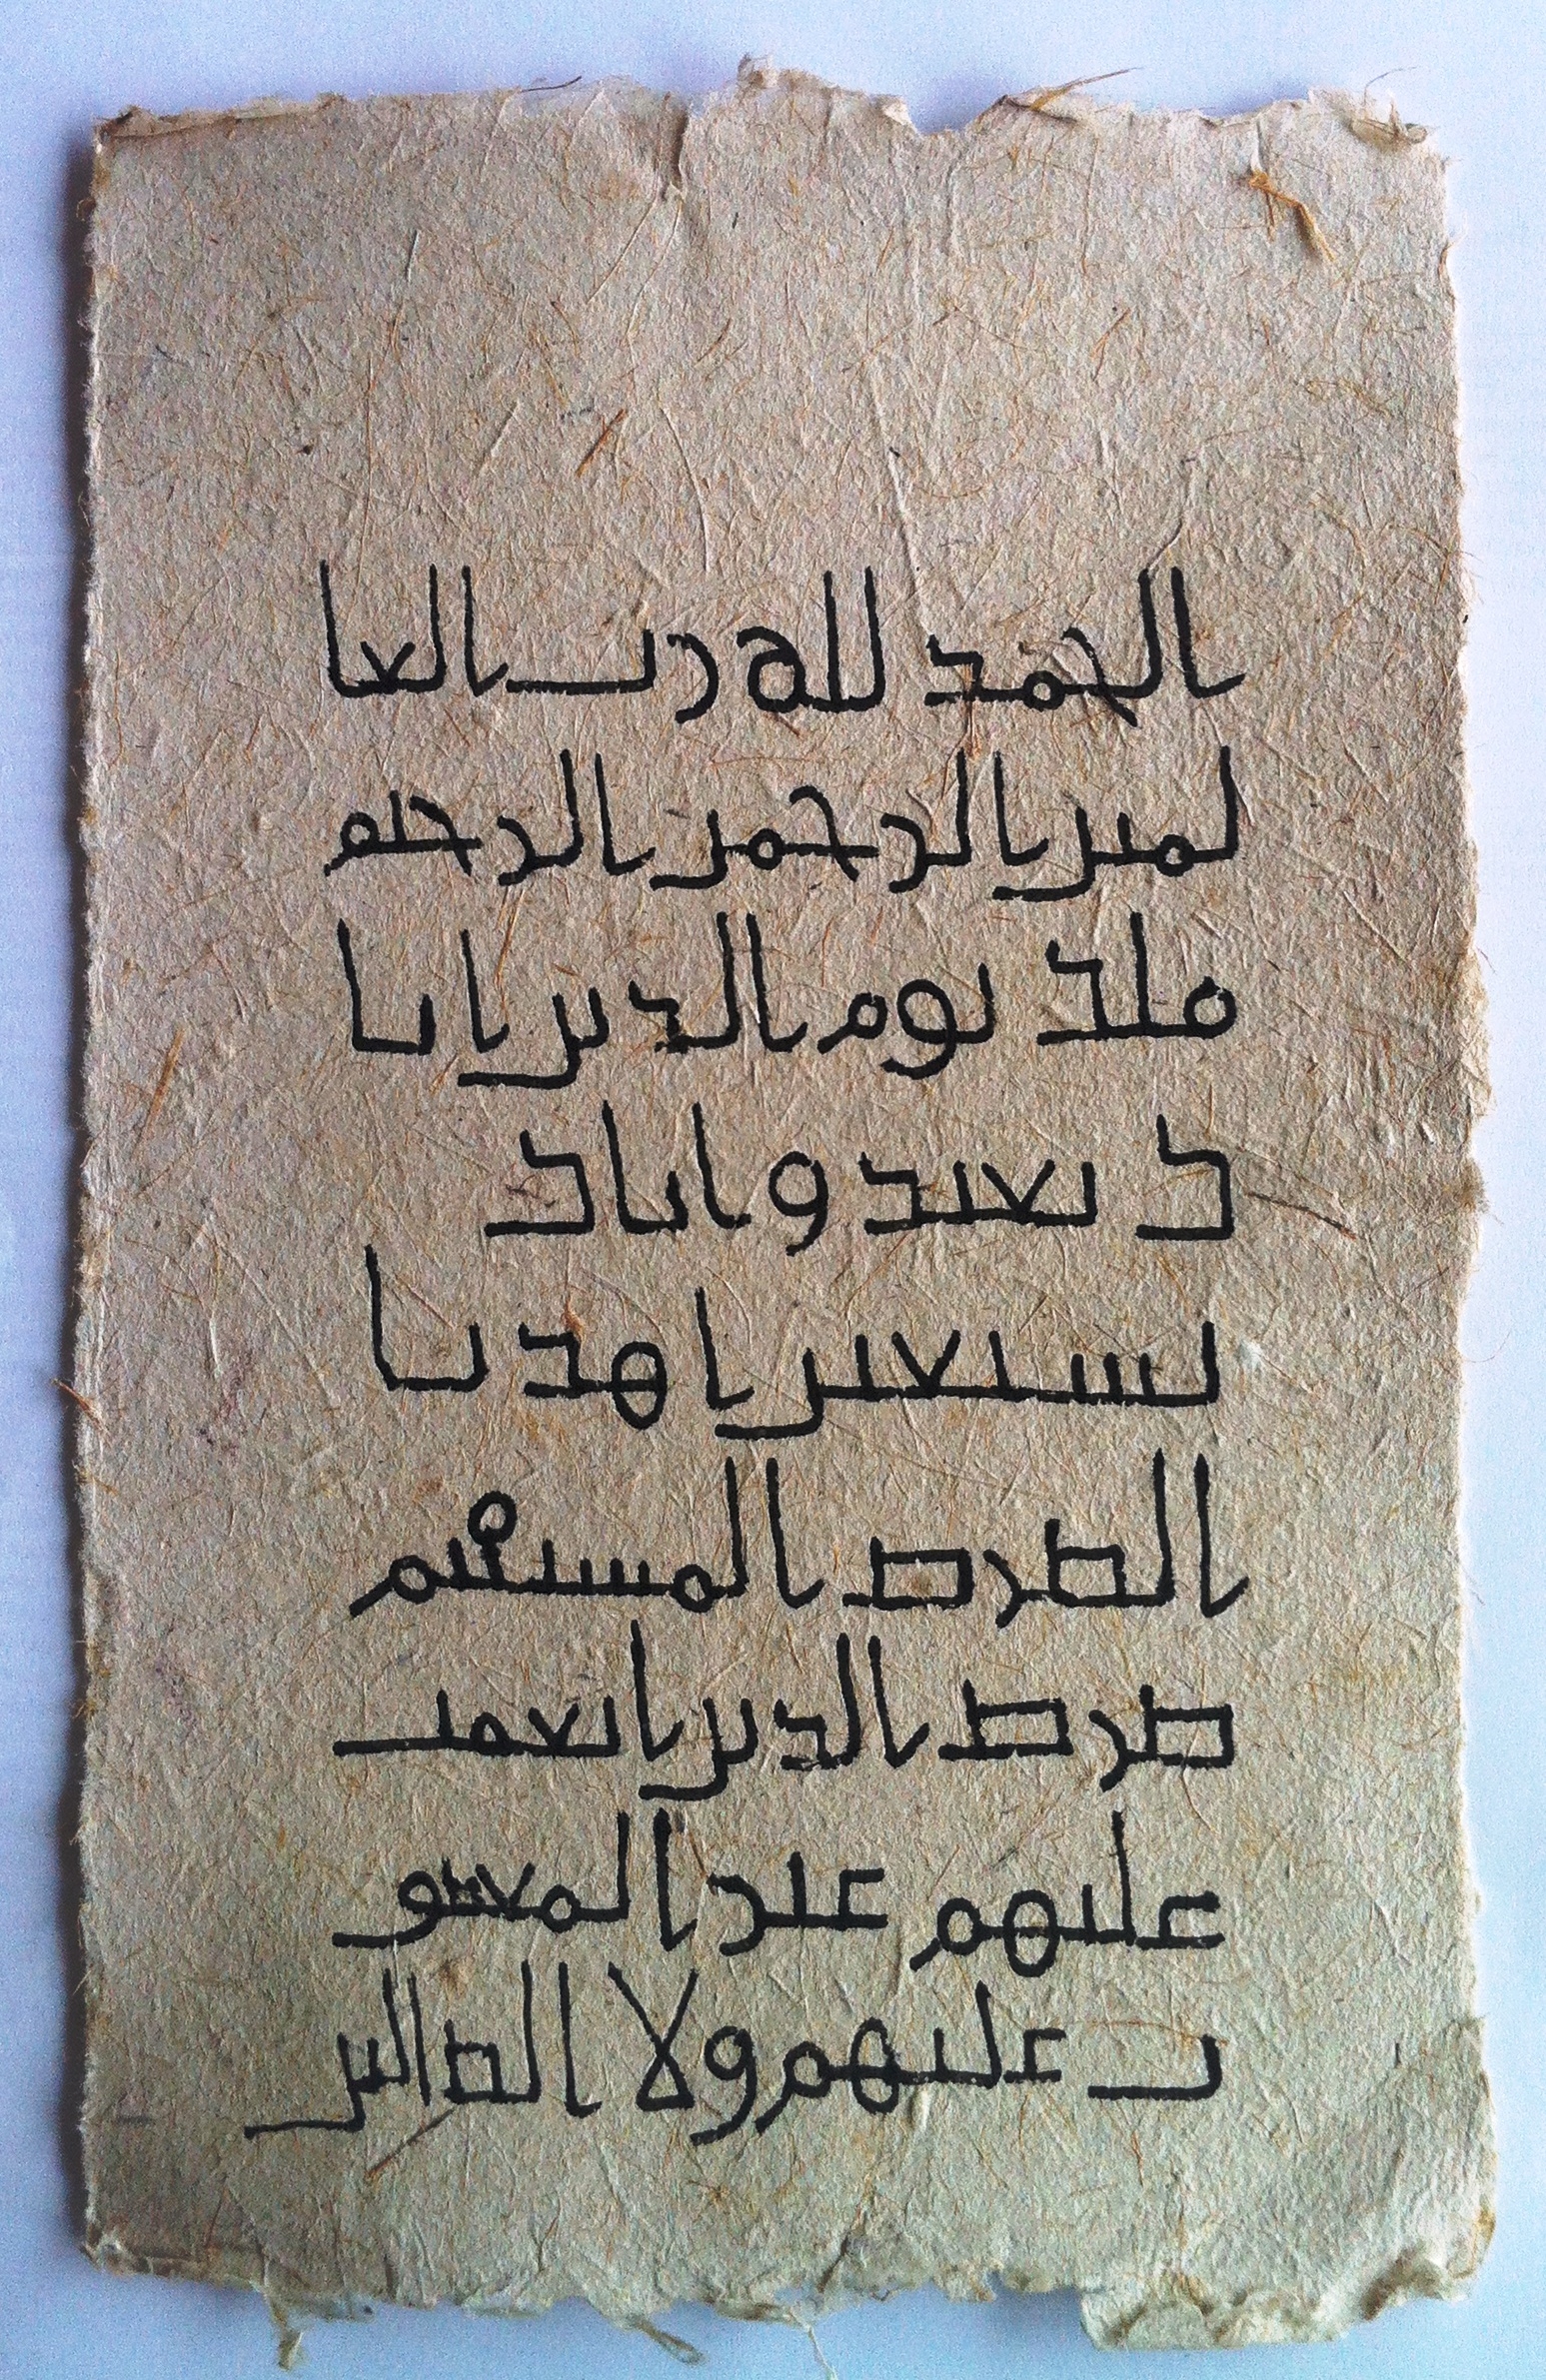 الحمد لله رب العا
لمين الرحمن الرحيم
ملك يوم الدين ايا
ك نعبد و اياك
نستعين اهدنا
الصرط المستقيم
صرط الذين انعمت
عليهم غير المغضو
ب عليهم ولا الضالين